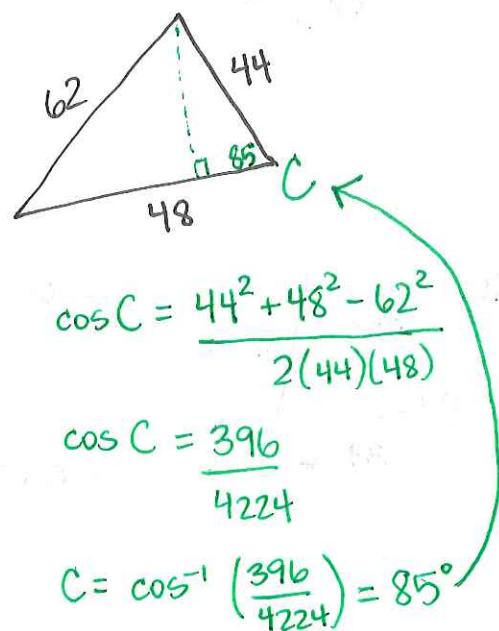 62
44
85
C
48
cos C = 44² + 48² - 62²
2(44)(48)
cos C = 396
4224
C = cos⁻¹ (396/4224) = 85°